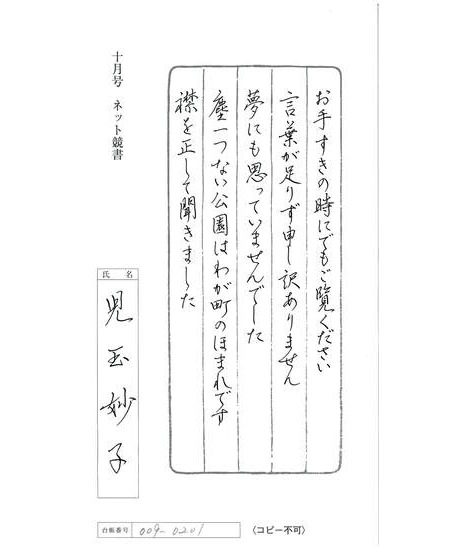 お手すきの時にでもご覧ください
言葉が足りず申し訳ありません
夢にも思っていませんでした
塵一つない公園はわが町のほまれです
襟を正して聞きました
十月号 ネット競書
氏名
児玉妙子
台帳番号 009-0201
〈コピー不可〉